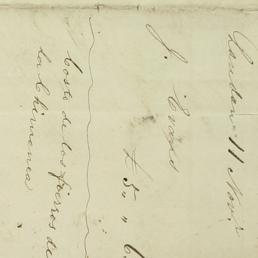 London 11 Novr
J. Evans
£ 5 " " 6
Costo de los fierros de
la Chimenea